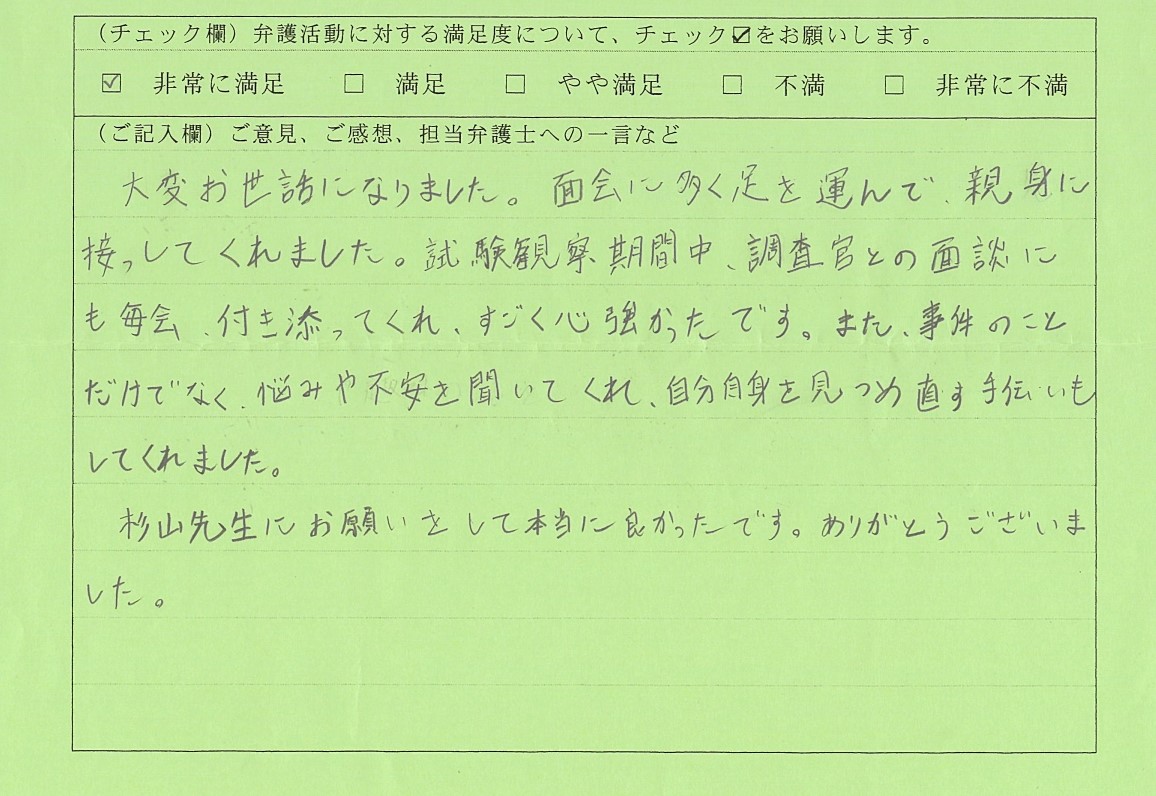 （チェック欄）弁護活動に対する満足度について、チェック☑をお願いします。
☑ 非常に満足 □ 満足 □ やや満足 □ 不満 □ 非常に不満
（ご記入欄）ご意見、ご感想、担当弁護士への一言など
大変お世話になりました。面会に多く足を運んで、親身に
接っしてくれました。試験観察期間中、調査官との面談に
も毎会、付き添ってくれ、すごく心強かったです。また、事件のこと
だけでなく、悩みや不安を聞いてくれ、自分自身を見つめ直す手伝いも
してくれました。
杉山先生にお願いをして本当に良かったです。ありがとうございま
した。